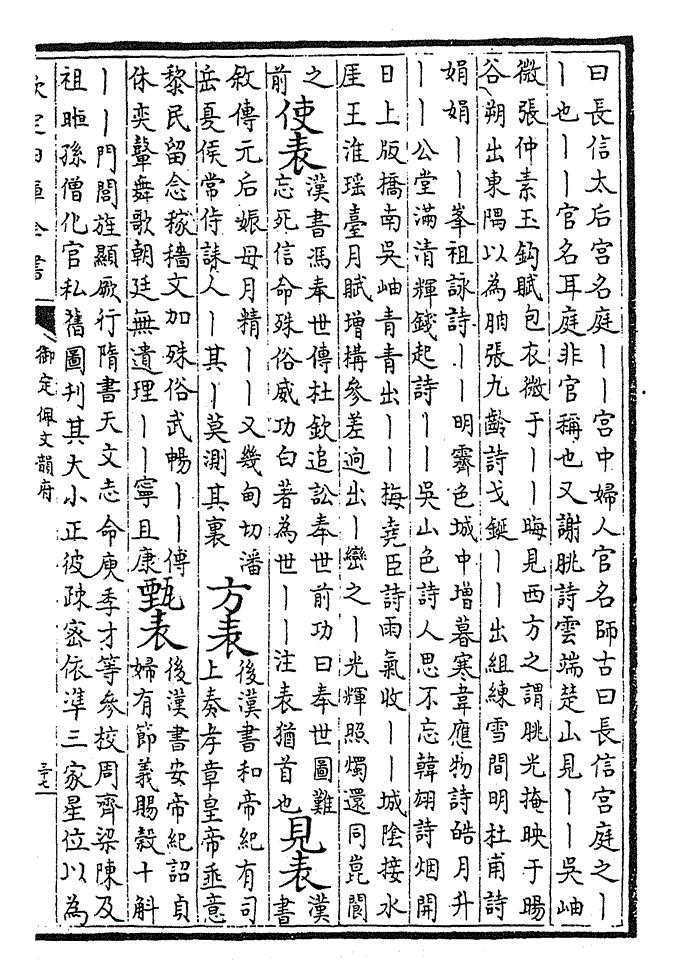 曰長信太后宫名庭丨丨宫中婦人官名師古曰長信宫庭之丨
丨也丨丨官名耳庭非官稱也又謝朓詩雲端楚山見丨丨吳岫
微張仲素玉鈎賦包衣微于丨丨晦見西方之謂朓光掩映于暘
谷朔出東隅以為朒張九齡詩戈鋋丨丨出組練雪間明杜甫詩
娟娟丨丨峯祖詠詩丨丨明霽色城中增暮寒韋應物詩皓月升
丨丨公堂滿清輝錢起詩丨丨吳山色詩人思不忘韓翃詩烟開
日上版橋南吳岫青青出丨丨梅堯臣詩雨氣收丨丨城陰接水
厓王淮瑶臺月賦增搆參差逈出丨巒之丨光輝照燭還同崑閬
之
前
使表
漢書馮奉世傳杜欽追訟奉世前功曰奉世圖難
忘死信命殊俗威功白著為世丨丨注表猶首也
見表
漢
書
敘傳元后娠母月精丨丨又幾甸切潘
岳夏侯常侍誄人丨其丨莫測其裏
方表
後漢書和帝紀有司
上奏孝章皇帝垂意
黎民留念稼穡文加殊俗武暢丨丨傅
休奕鼙舞歌朝廷無遺理丨丨寧且康
甄表
後漢書安帝紀詔貞
婦有節義賜穀十斛
丨丨門閭旌顯厥行隋書天文志命庾季才等參校周齊梁陳及
祖暅孫僧化官私舊圖刊其大小正彼疎宻依準三家星位以為
欽定四庫全書
御定佩文韻府
三七